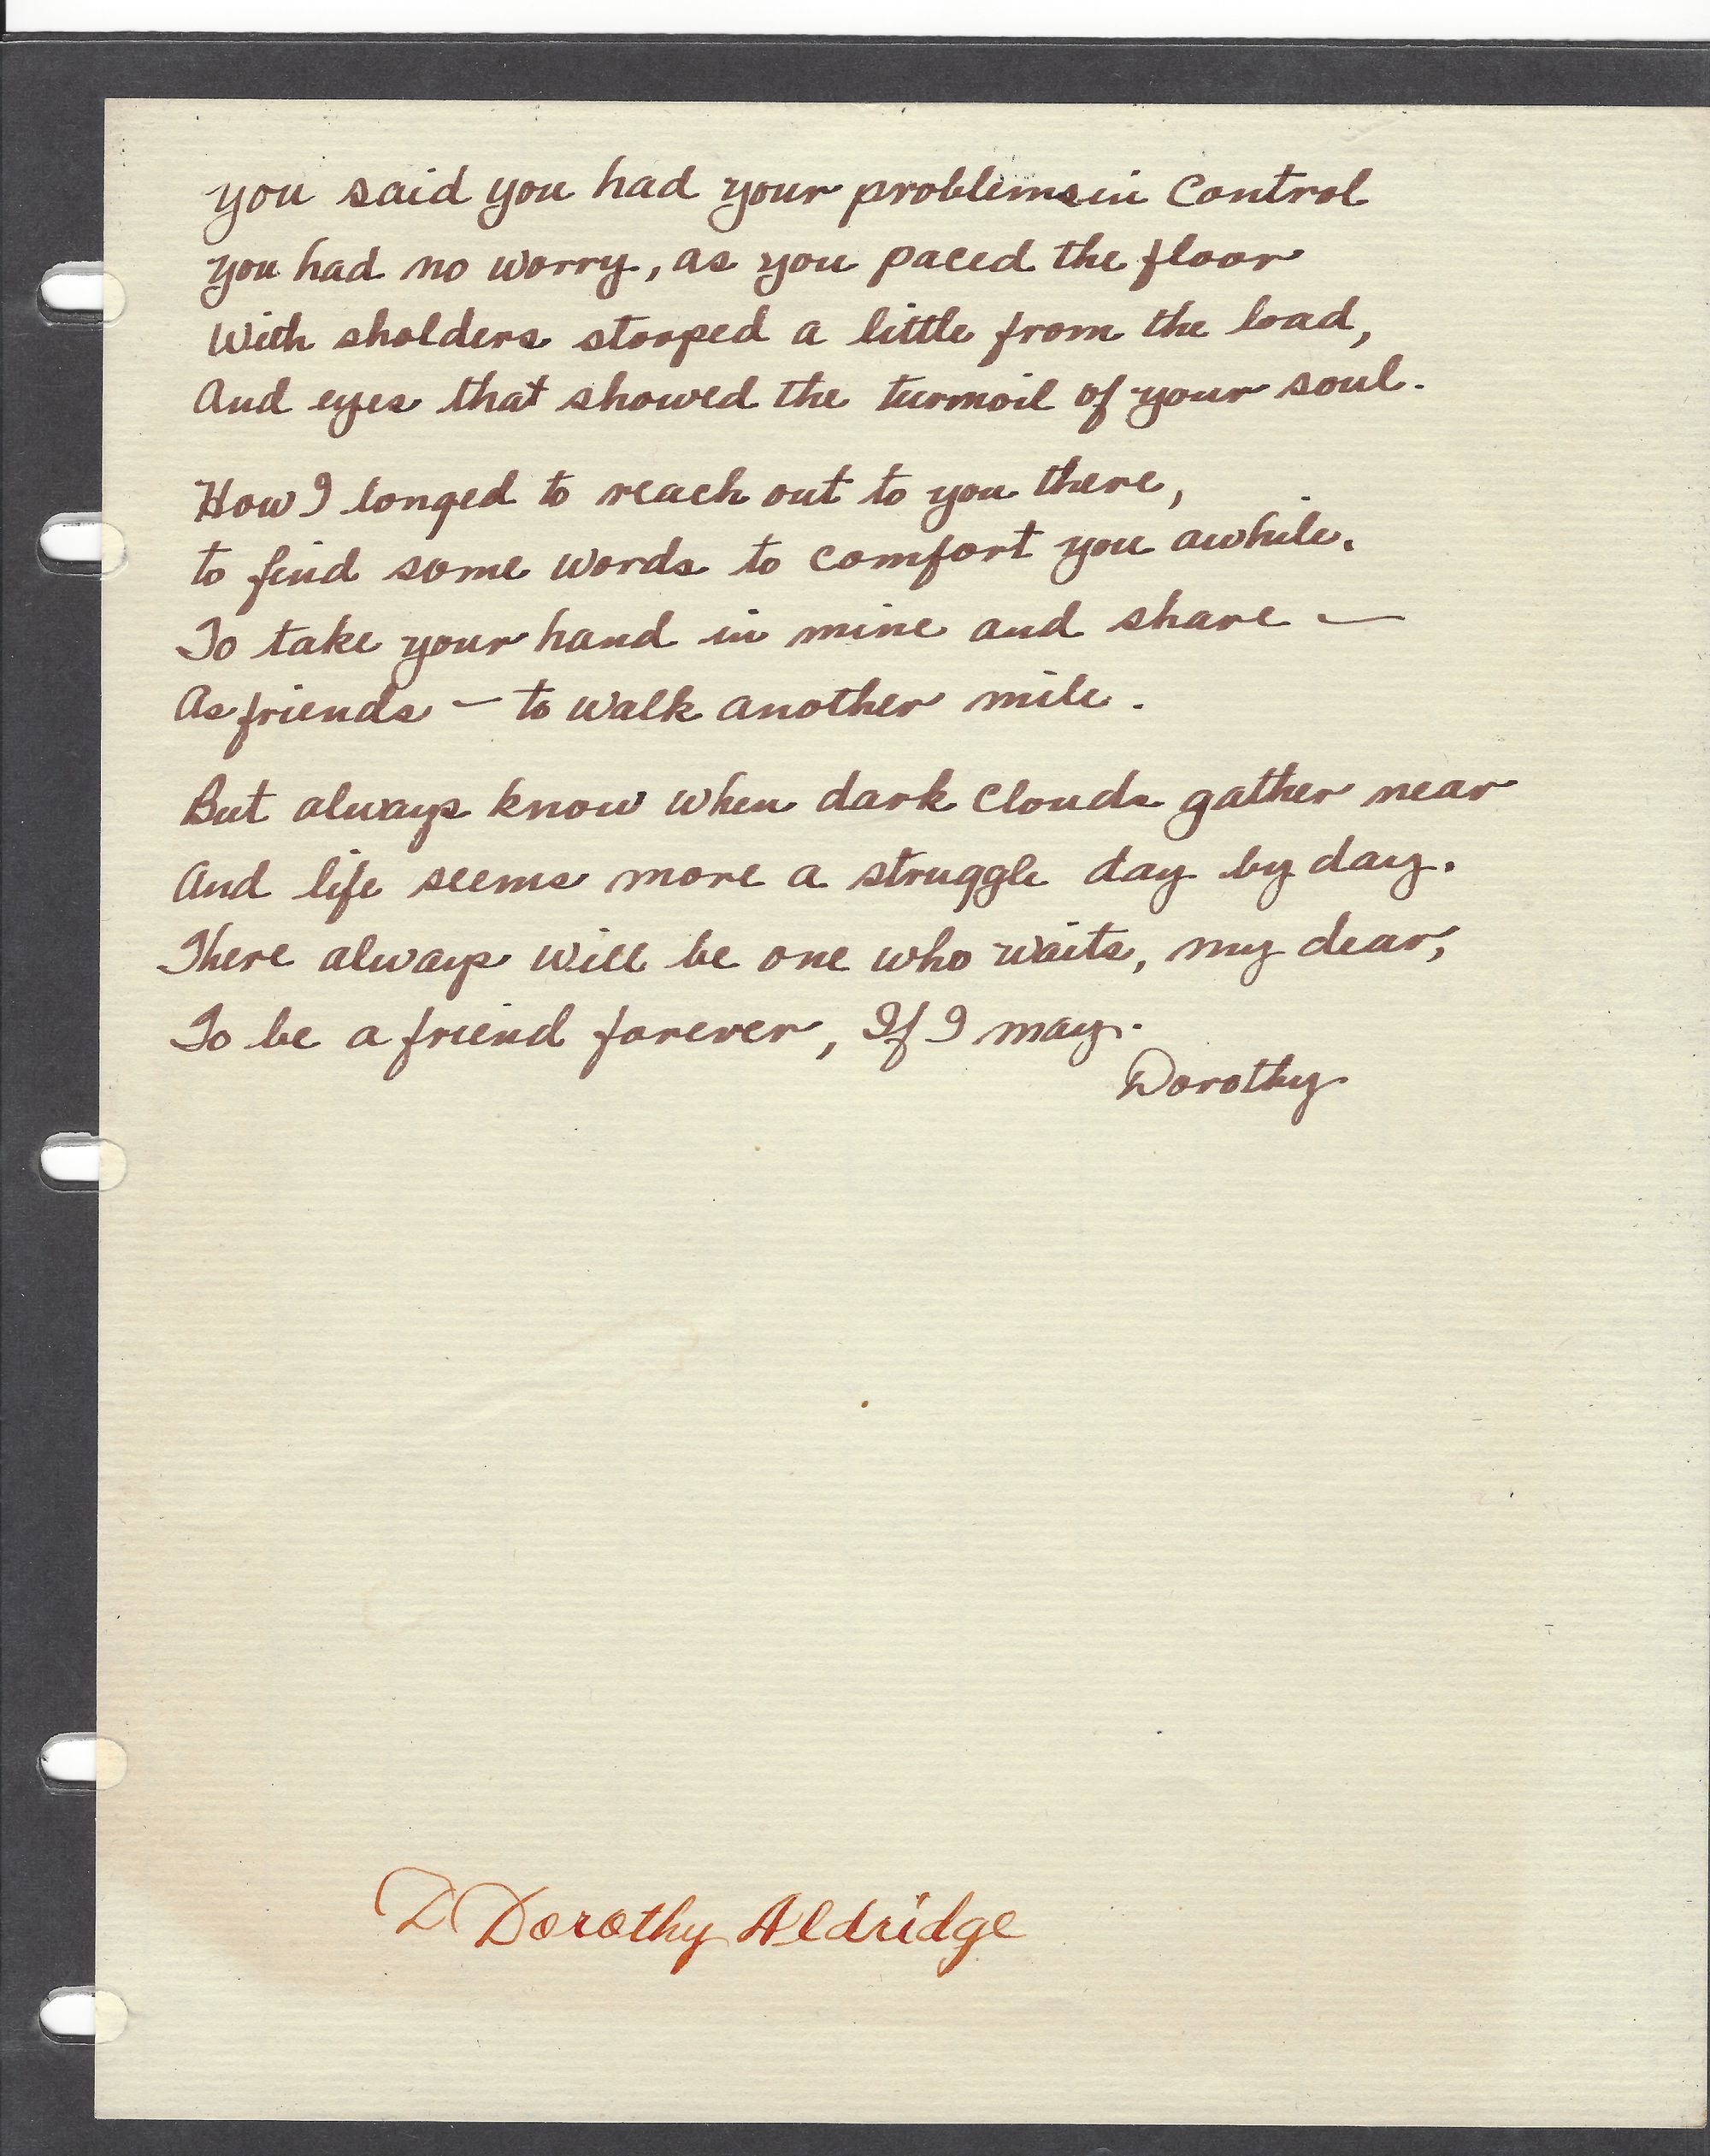 you said you had your problems in Control
you had no worry, as you paced the floor
With sholders stooped a little from the load,
And eyes that showed the turmoil of your soul.
How I longed to reach out to you there,
to find some words to comfort you awhile.
To take your hand in mine and share —
As friends — to walk another mile.
But always know when dark clouds gather near
And life seems more a struggle day by day.
There always will be one who waits, my dear,
To be a friend forever, If I may.
Dorothy
D Dorothy Aldridge